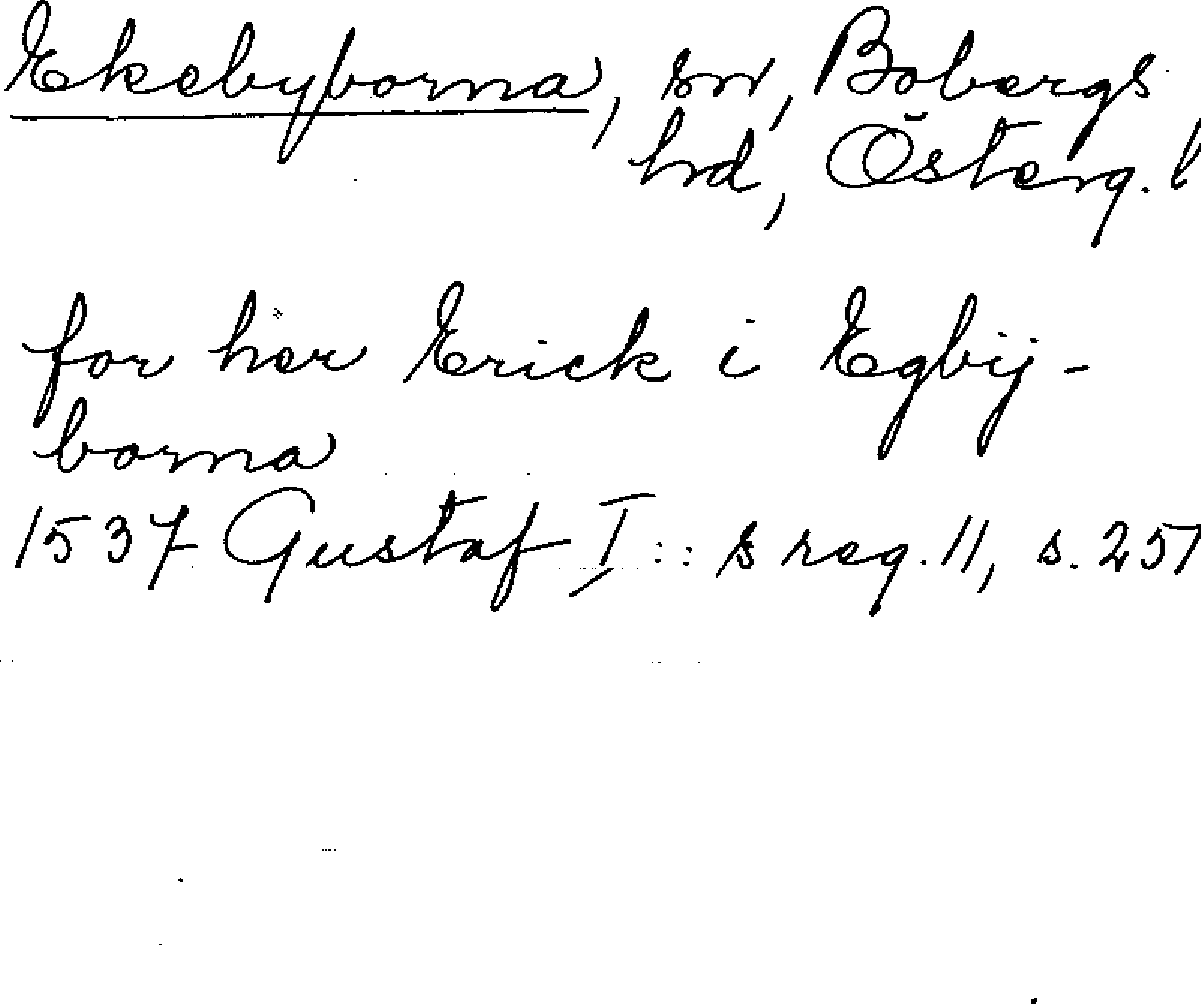 Ekebyborna, sn, Bobergs
hd, Österg. l
for her Erick i Egbij-
borna
1537 Gustaf I:: s reg. 11, s. 257